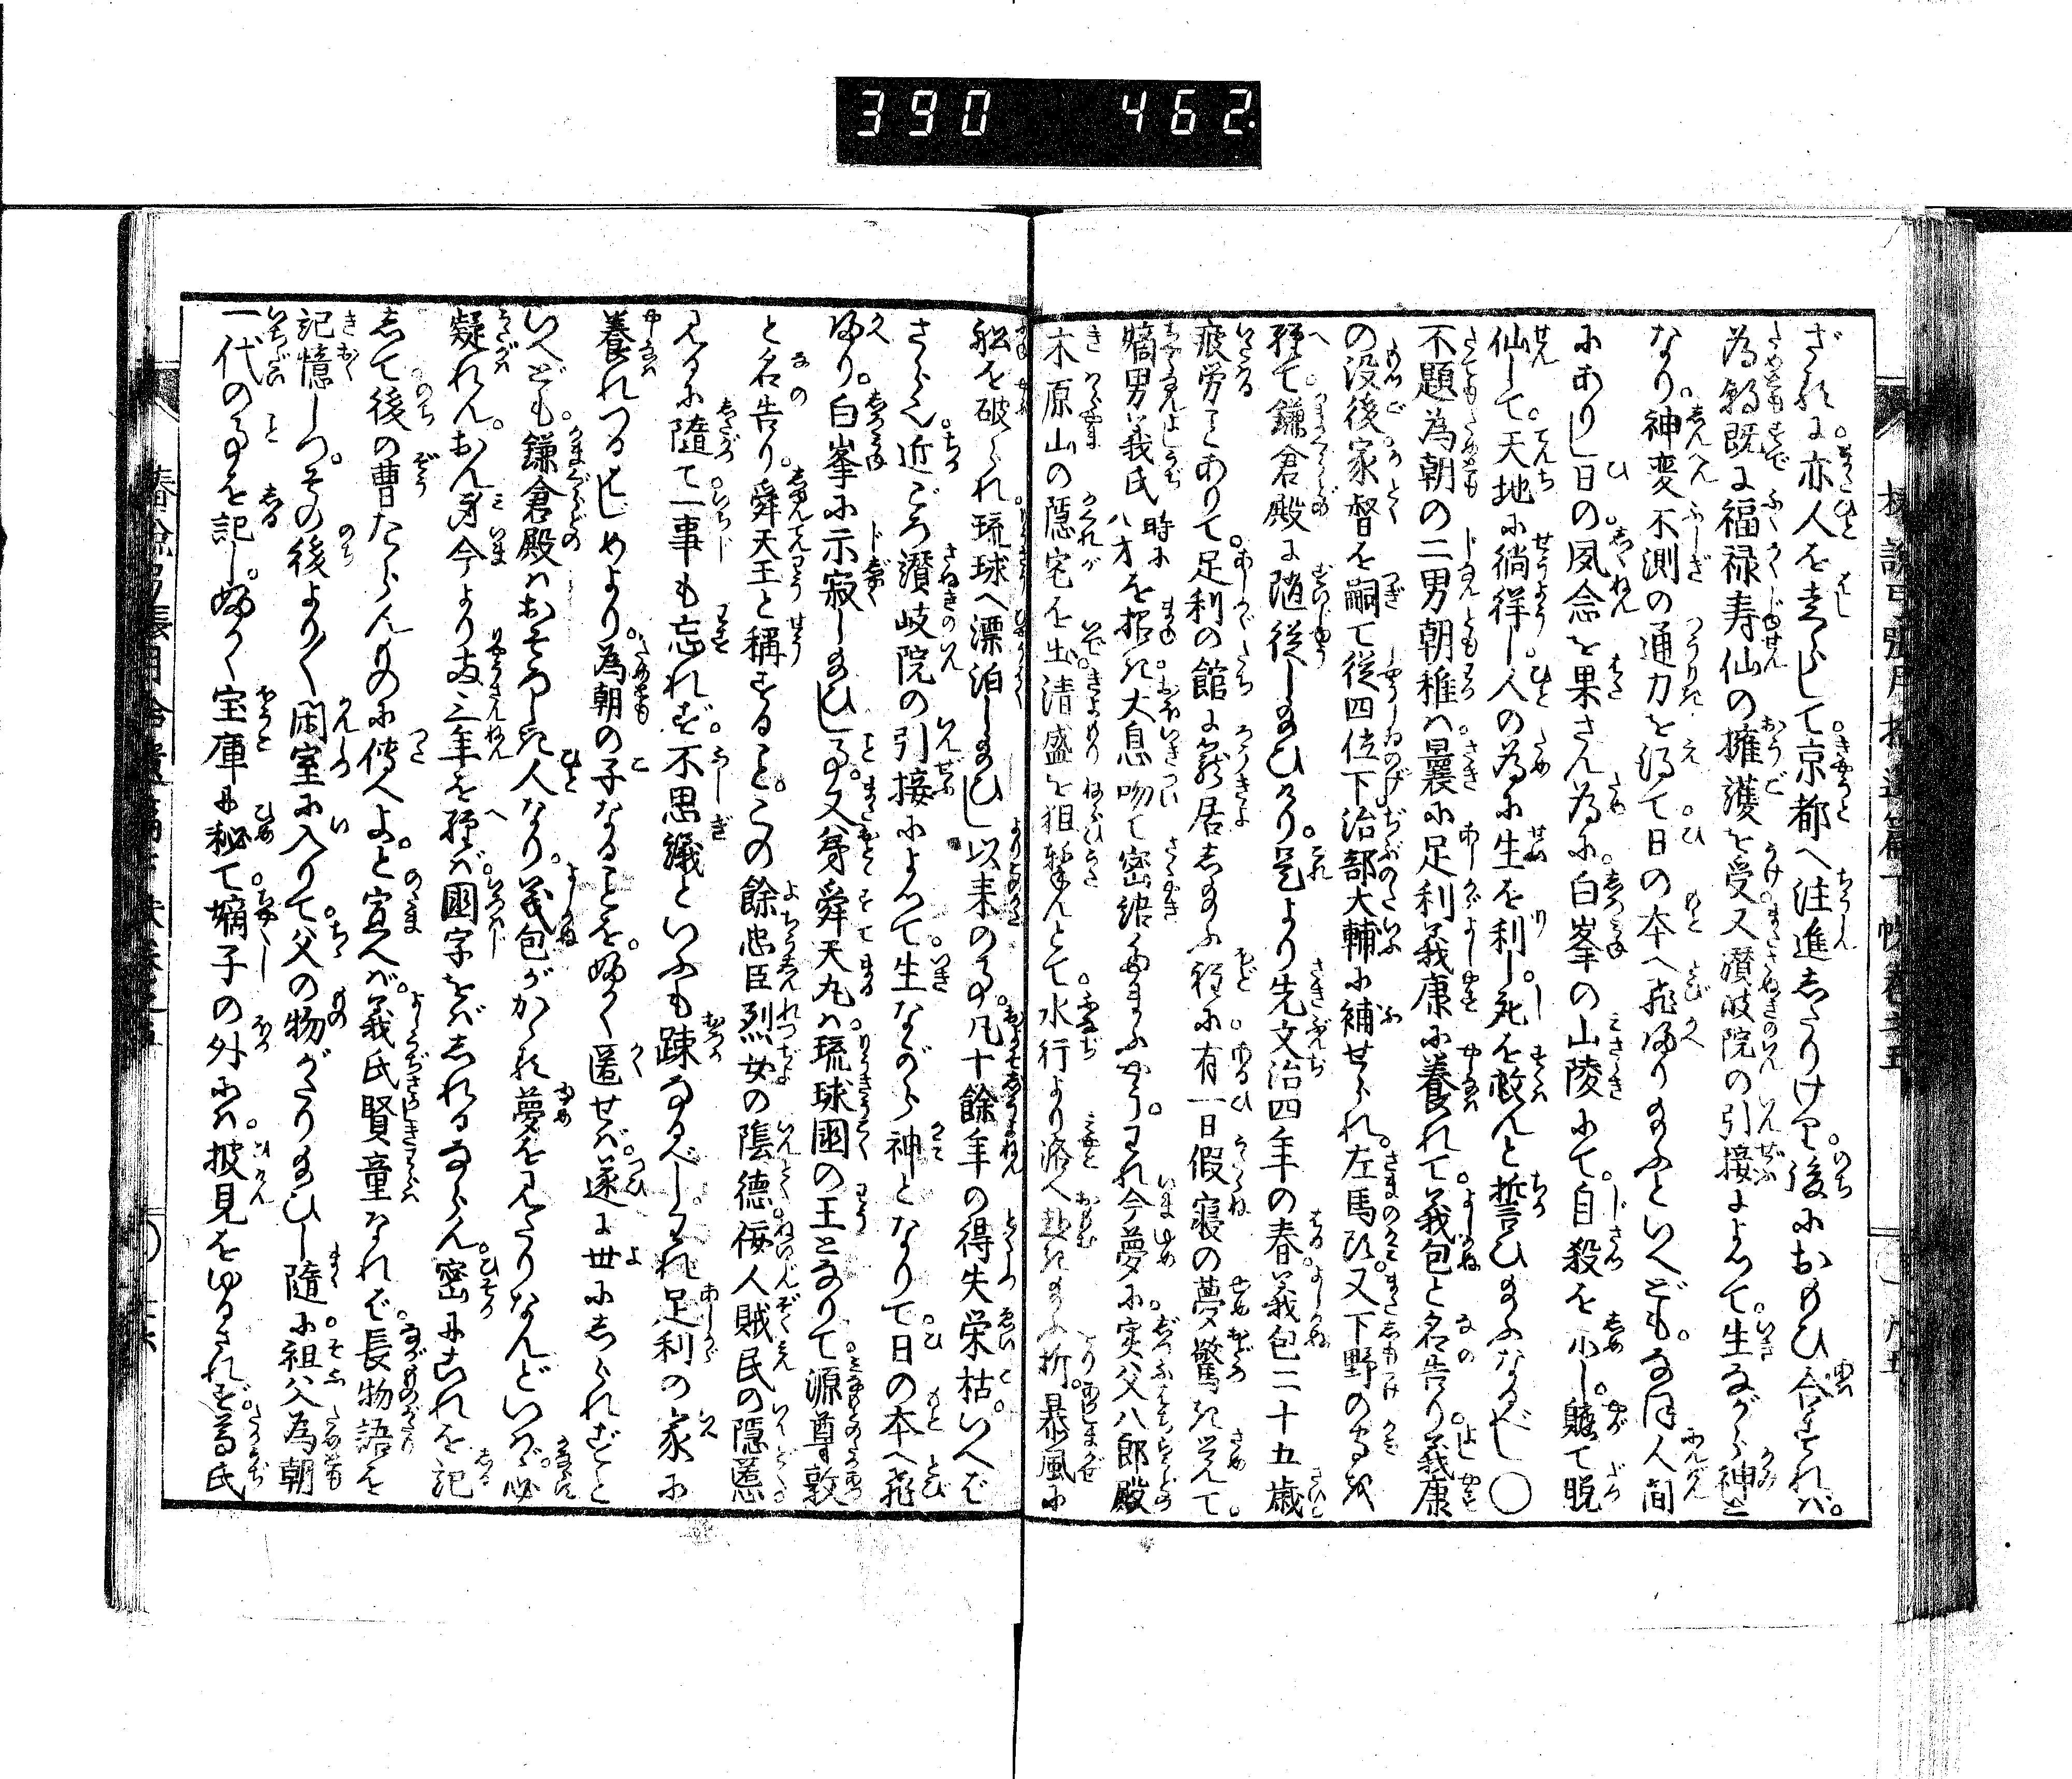 390 462
ざれば亦人を走らして。京都へ注進したりけり。後におもひ合すれば。
為朝既に福禄寿仙の擁護を受。又讃岐院の引接によつて。生ながら神と
なり。神変不測の通力を得て日の本へ飛帰り給ふといへども。なほ人間
にありし日の夙念を果さん為に。白峯の山陵にて。自殺を示し。軀て脱
仙して。天地に徜徉し。人の為に生を利し。死を救んと誓ひ給ふなるべし○
不題為朝の二男朝稚は曩に足利義康に養れて。義包と名告り。義康
の没後家督を嗣て従四位下治部大輔に補せられ。左馬頭。又下野の守を
歴て。鎌倉殿に随従し給ひけり。是より先文治四年の春。義包二十五歳
疲労ことありて。足利の館に籠居し給ふ程に。有一日假寝の夢驚き覚て。
嫡男義氏 時に八才 を招き。大息吻て密語たまふやう。われ今夢に。実父八郎殿
木原山の隠宅を出。清盛を狙撃んとて。水行より潜へ赴き給ふ折。暴風に
舩を破られ。琉球へ漂泊し給ひし以来の事。凡十餘年の得失栄枯。いへば
さら也。近ごろ讃岐院の引接によつて。生ながら神となりて。日の本へ飛
帰り。白峯に示寂し給ひし事。又弟舜天丸は。琉球國の王となりて。源尊敦
と名告り。舜天王と稱すること。この餘忠臣烈女の陰徳。佞人賊民の隠慝
見るに隨て。一事も忘れず。不思議といふも疎なるべし。われ足利の家に
養れつるはじめより。為朝の子なることを。ふかく匿せば。遂に世にしられずと
いへども。鎌倉殿はおそろしき人なり。義包がかゝる夢を見たりなんどいはゞ。必
疑れん。おん身今より両三年を経ば。國字をばしれるならん。密にこれを記
して後の曹たらんものに傳へよ。と宣へば。義氏賢童なれば。長物語を
記憶しつ。その後よりより閑室に入りて。父の物がたり給ひし隨に。祖父為朝
一代の事を記し。ふかく宝庫に秘て。嫡子の外には。披見をゆるされず。尊氏